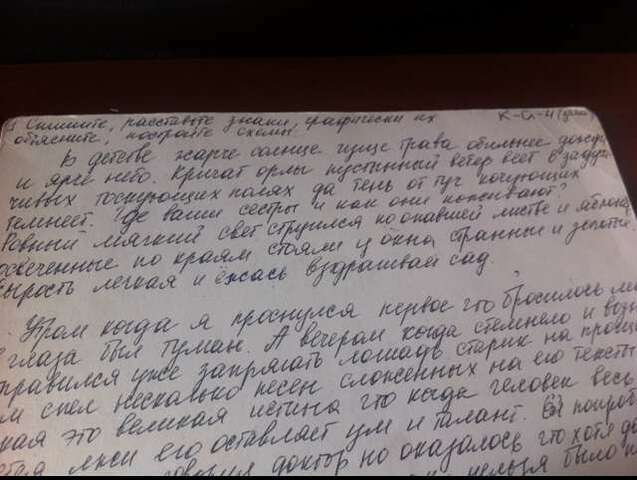 Спишите, расставьте знаки, графически их
К-Ol-4
объясните, постройте схемы.
В детстве жарче солнце гуще трава обильнее дожди
и ярче небо. Кричат орлы пустынный ветер веет в задум
чивых тоскующих полях да тень от туч кочующих
темнеет. Где ваши сестры и как они поживают?
Ровный мягкий свет струился по опавшей листве и яблони
освеченные по краям стояли у окна странны и золоти
сырость легкая и ёжась вздрагивай сад.
Утром когда я проснулся первое что бросилось мне
в глаза был туман. А вечером когда стемнело и
отправился уже запрягать лошадь старик на проща
спел несколько песен сложенных на его тексты
кая это великая истина что когда человек весь
его оставляет ум и талант.
говорил доктор но оказалось что хотя
нельзя было